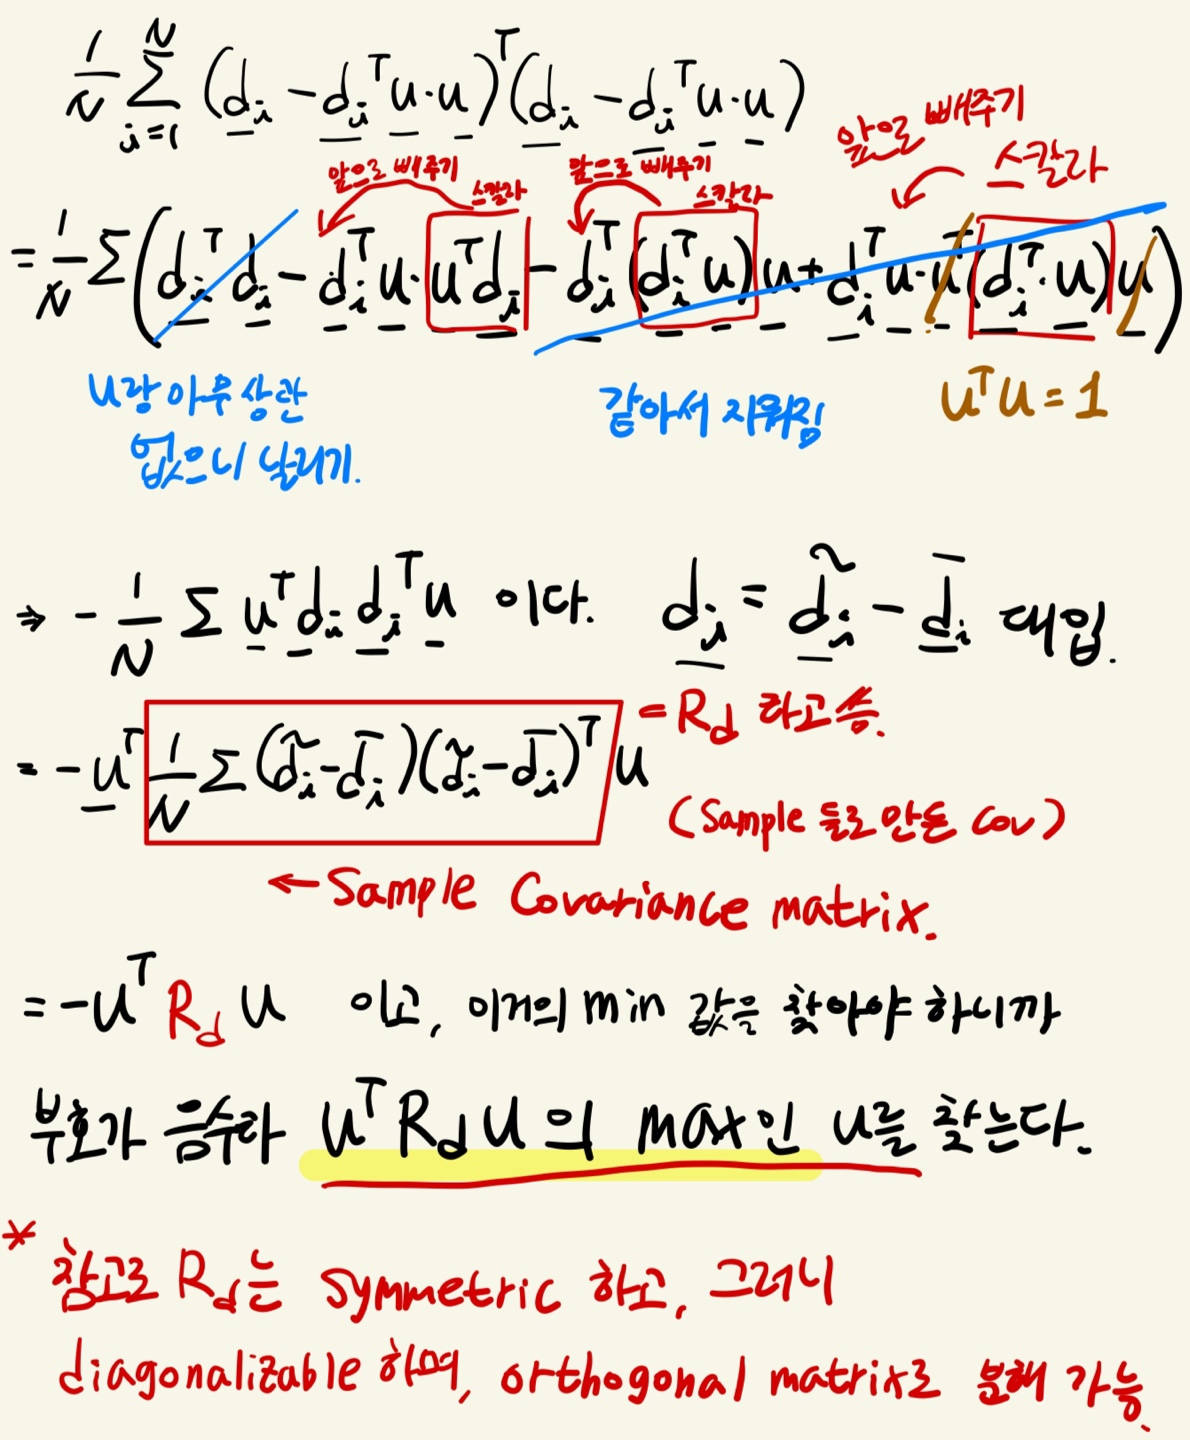 1/N Σ_{i=1}^{N} (d_i - d_i^T u·u)^T (d_i - d_i^T u·u)
앞으로 빼주기 스칼라
앞으로 빼주기 스칼라
앞으로 빼주기 스칼라
= 1/N Σ (d_i^T d_i - d_i^T u·u^T d_i - d_i^T (d_i^T u) u + d_i^T u·u^T (d_i^T·u) u)
u랑 아무 상관
없으니 날리기.
같아서 지워짐
u^T u = 1
⇒ - 1/N Σ u^T d_i d_i^T u 이다. d_i = d̃_i - d̄_i 대입.
= -u^T 1/N Σ (d̃_i - d̄_i)(d̃_i - d̄_i)^T u = R_d 라고 씀.
(Sample 들로 만든 Cov)
← Sample Covariance matrix.
= -u^T R_d u 이고, 이거의 min 값을 찾아야 하니까
부호가 음수라 u^T R_d u 의 max인 u를 찾는다.
* 참고로 R_d는 symmetric 하고, 그러니
diagonalizable 하며, orthogonal matrix로 분해 가능.